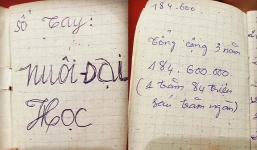 Sổ Tay:
NUÔI ĐẠI
HỌC
184.600
Tổng cộng 3 năm
184.600.000.
(1 trăm 84 triệu
sáu trăm ngàn)